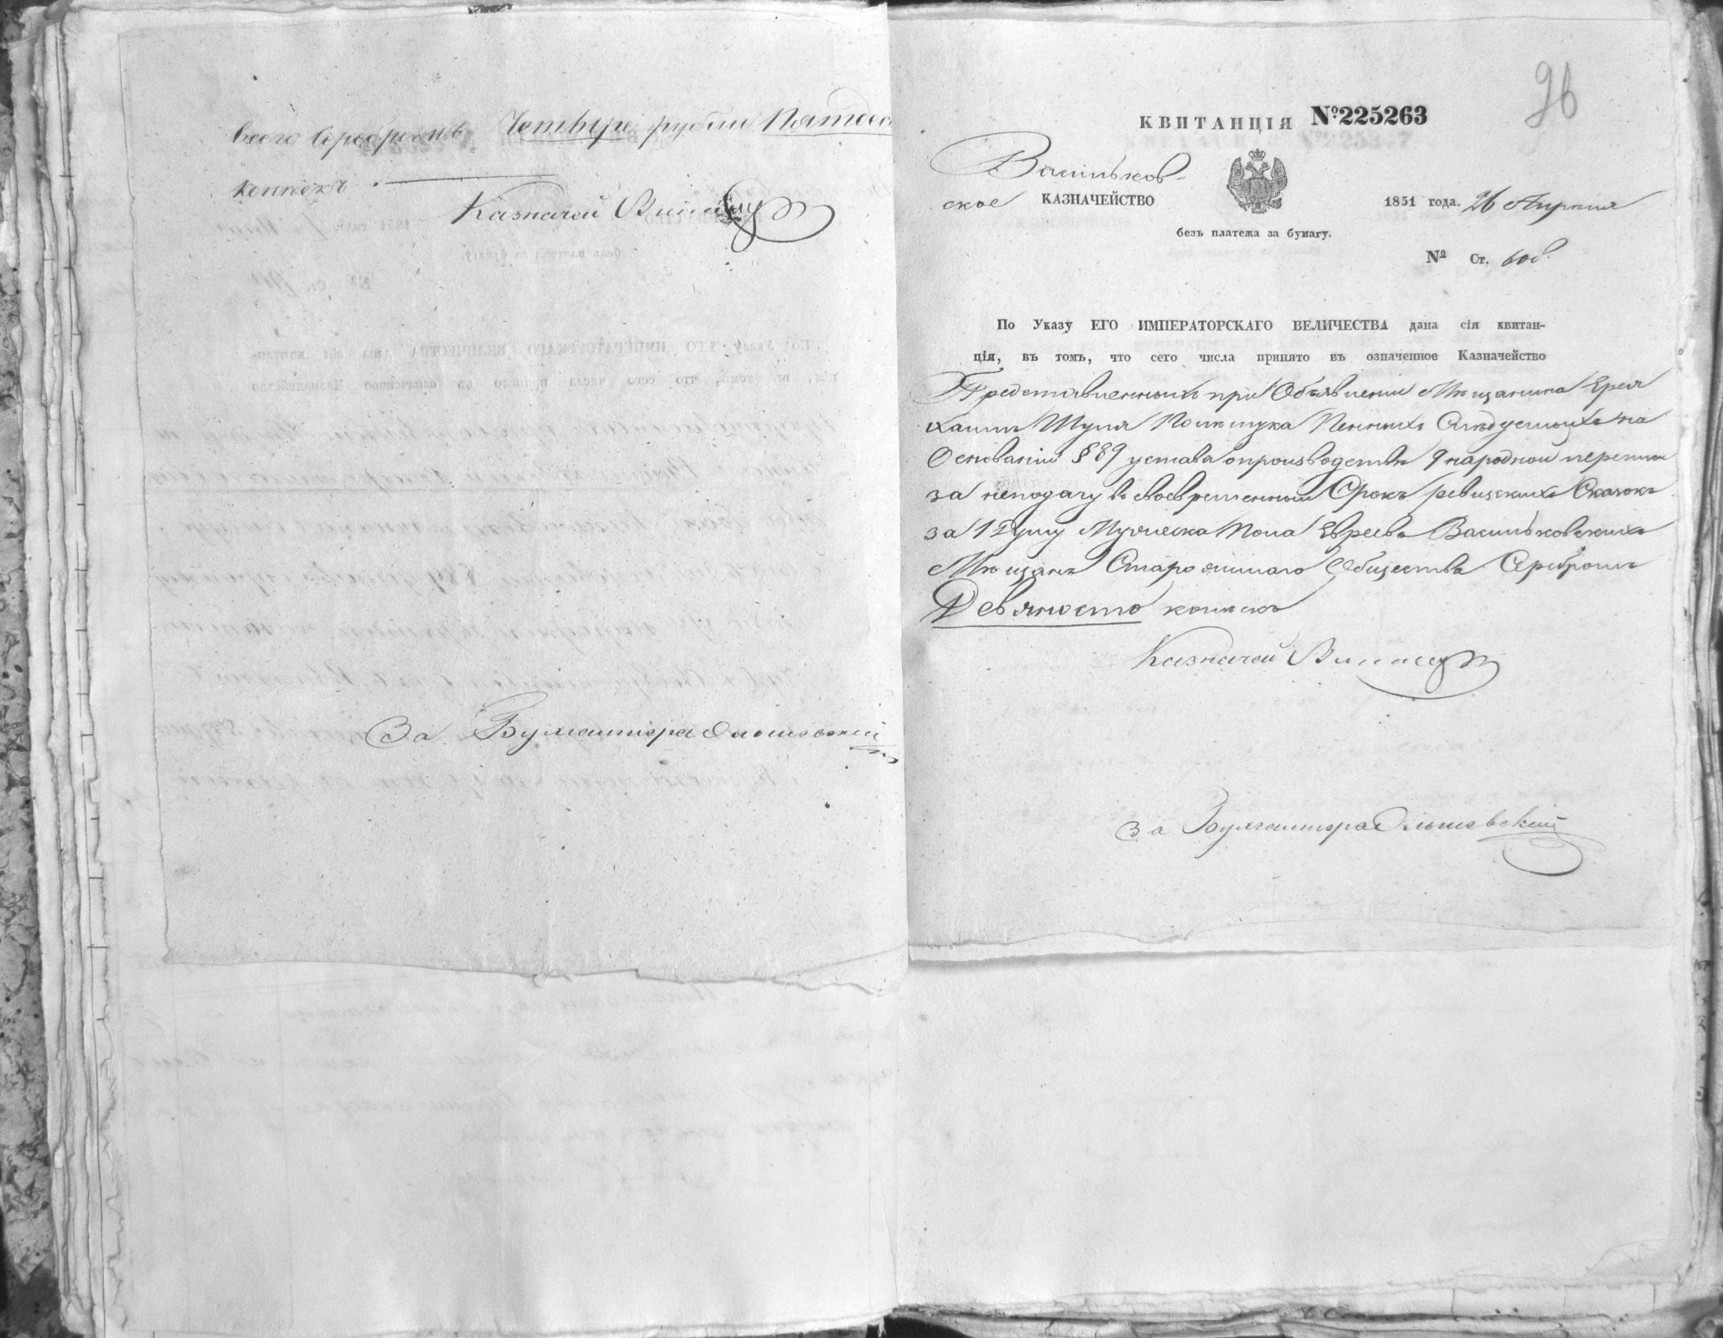 всего серебромъ Четыре рубли Пятдес
копѣекъ
Казначей
За Бухгалтера Ольшевскій
96
КВИТАНЦІЯ №225263
Васильков-
ское КАЗНАЧЕЙСТВО
1851 года. 26 Апрѣля
безъ платежа за бумагу.
№ Ст. 608.
По Указу ЕГО ИМПЕРАТОРСКАГО ВЕЛИЧЕСТВА дана сія квитан-
ція, въ томъ, что сего числа принято въ означенное Казначейство
Представленныхъ при Объявленіи Мѣщанина
Шуля Полищука Пенныхъ Слѣдующихъ на
Основаніи § 89 устава о производствѣ 9 народной переписи
за неподачу въ своевременный Срокъ ревизскихъ Сказокъ
за 1 Душу Мужеска Пола Евреевъ Васильковскихъ
Мѣщанъ Старожилаго Общества Серебромъ
Девяносто копѣекъ
Казначей
За Бухгалтера Ольшевскій